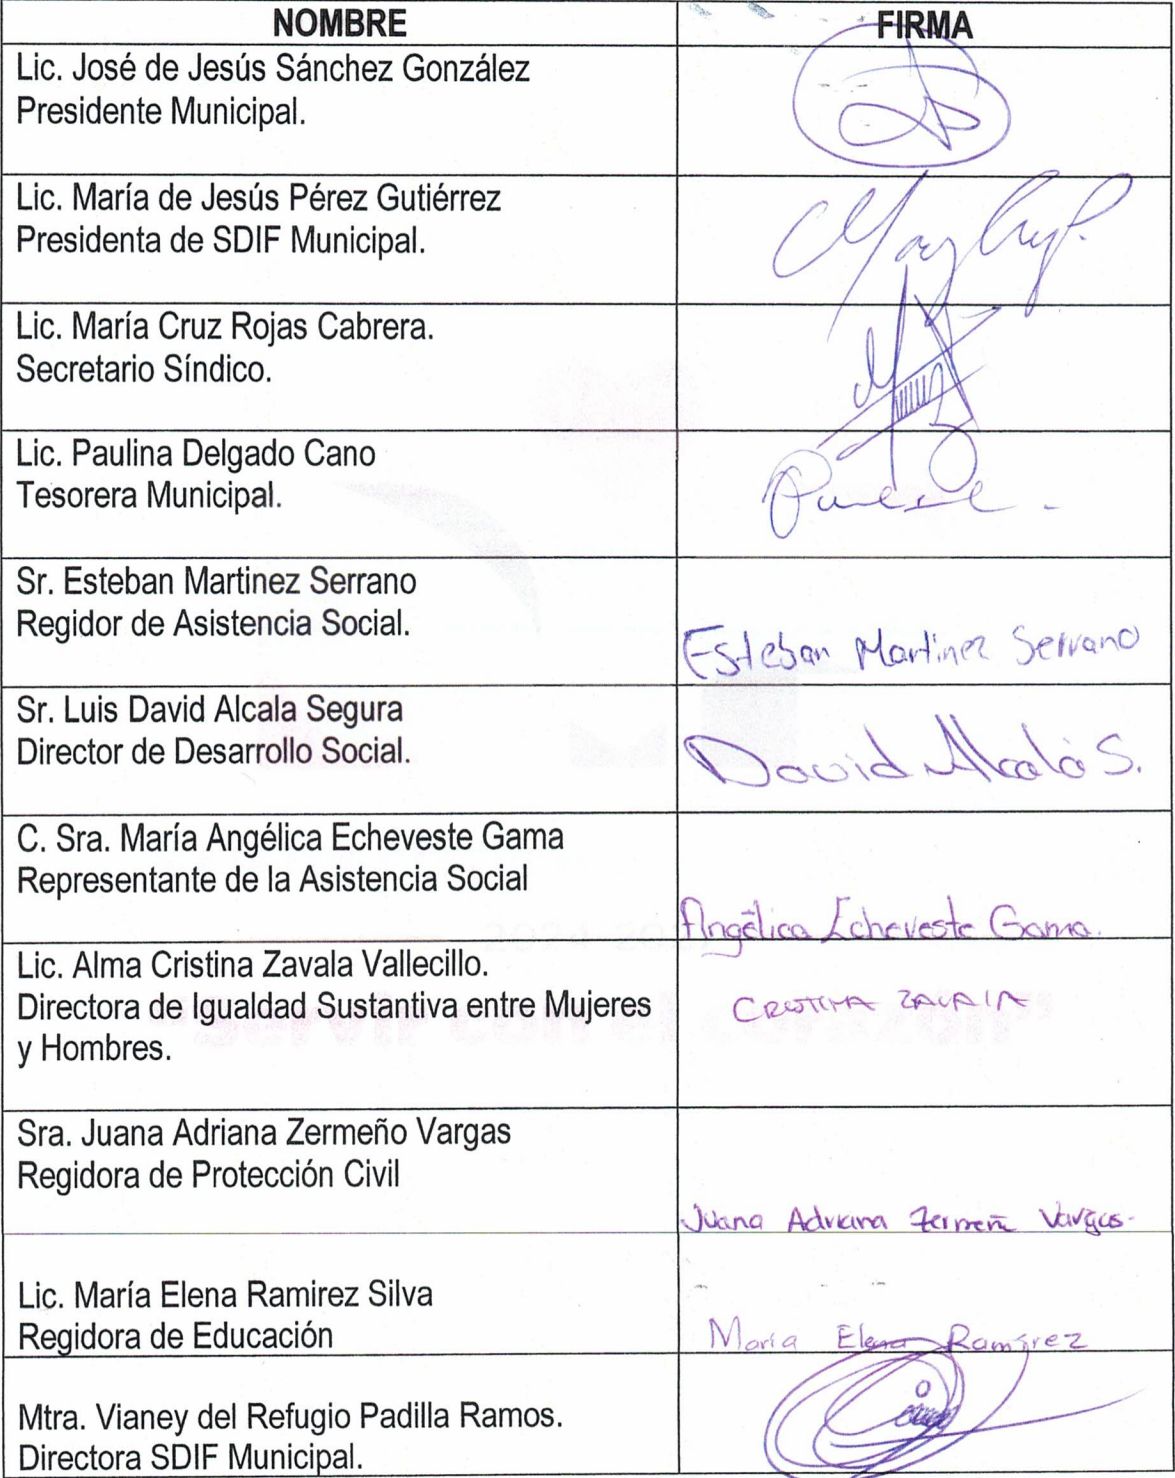 NOMBRE FIRMA
Lic. José de Jesús Sánchez González
Presidente Municipal.
Lic. María de Jesús Pérez Gutiérrez
Presidenta de SDIF Municipal.
Lic. María Cruz Rojas Cabrera.
Secretario Síndico.
Lic. Paulina Delgado Cano
Tesorera Municipal.
Sr. Esteban Martinez Serrano
Regidor de Asistencia Social.
Esteban Martinez Serrano
Sr. Luis David Alcala Segura
Director de Desarrollo Social.
David Alcalá S.
C. Sra. María Angélica Echeveste Gama
Representante de la Asistencia Social
Angélica Echeveste Gama.
Lic. Alma Cristina Zavala Vallecillo.
Directora de Igualdad Sustantiva entre Mujeres
y Hombres.
CRISTINA ZAVALA
Sra. Juana Adriana Zermeño Vargas
Regidora de Protección Civil
Juana Adriana Zermeñ Vargas
Lic. María Elena Ramirez Silva
Regidora de Educación
María Elena Ramírez
Mtra. Vianey del Refugio Padilla Ramos.
Directora SDIF Municipal.